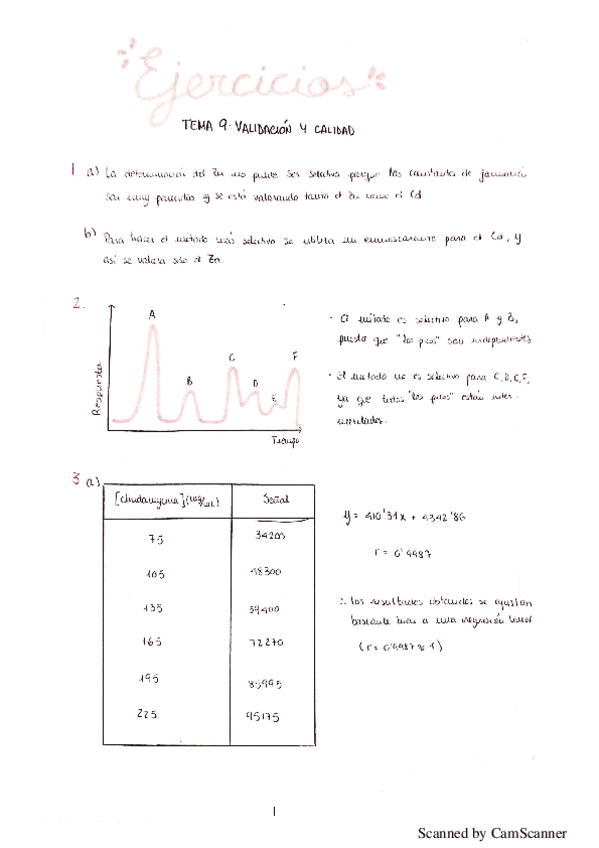 Ejercicios
TEMA 9. VALIDACIÓN Y CALIDAD
1 a) La determinación del Zn no puede ser selectiva porque las constantes de formación
son muy parecidas y se está valorando tanto el Zn como el Cd
b) Para hacer el método más selectivo se utiliza un enmascarante para el Cd, y
así se valora solo el Zn.
2.
A
B
C
D
E
F
Respuesta
Tiempo
· El método es selectivo para A y B,
puesto que "los picos" son independientes
· El método no es selectivo para C, D, E, F,
ya que todos "los picos" están
3 a)
Señal
75 34200
105 48300
135 59400
165 72270
195 85995
225 95175
y = 410'31x + 4342'86
r = 0'9987
∴ Los resultados obtenidos se ajustan
bastante bien a una regresión lineal
(r = 0'9987 ≈ 1)
1
Scanned by CamScanner